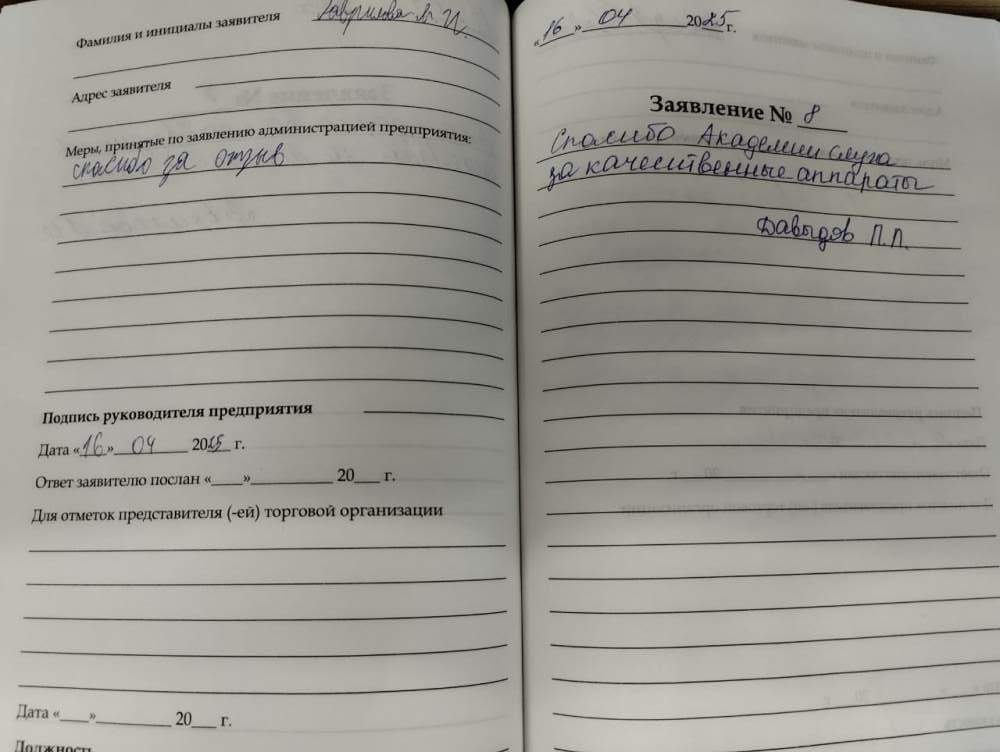 Фамилия и инициалы заявителя Гаврилова М. И.
Адрес заявителя
Меры, принятые по заявлению администрацией предприятия:
спасибо за отзыв
Подпись руководителя предприятия
Дата «16» 04 2025 г.
Ответ заявителю послан «____»__________ 20___ г.
Для отметок представителя (-ей) торговой организации
Дата «____»__________ 20___ г.
Должность
«16» 04 2025г.
Заявление № 8
Спасибо Академии слуха
за качественные аппараты
Давыдов П.П.